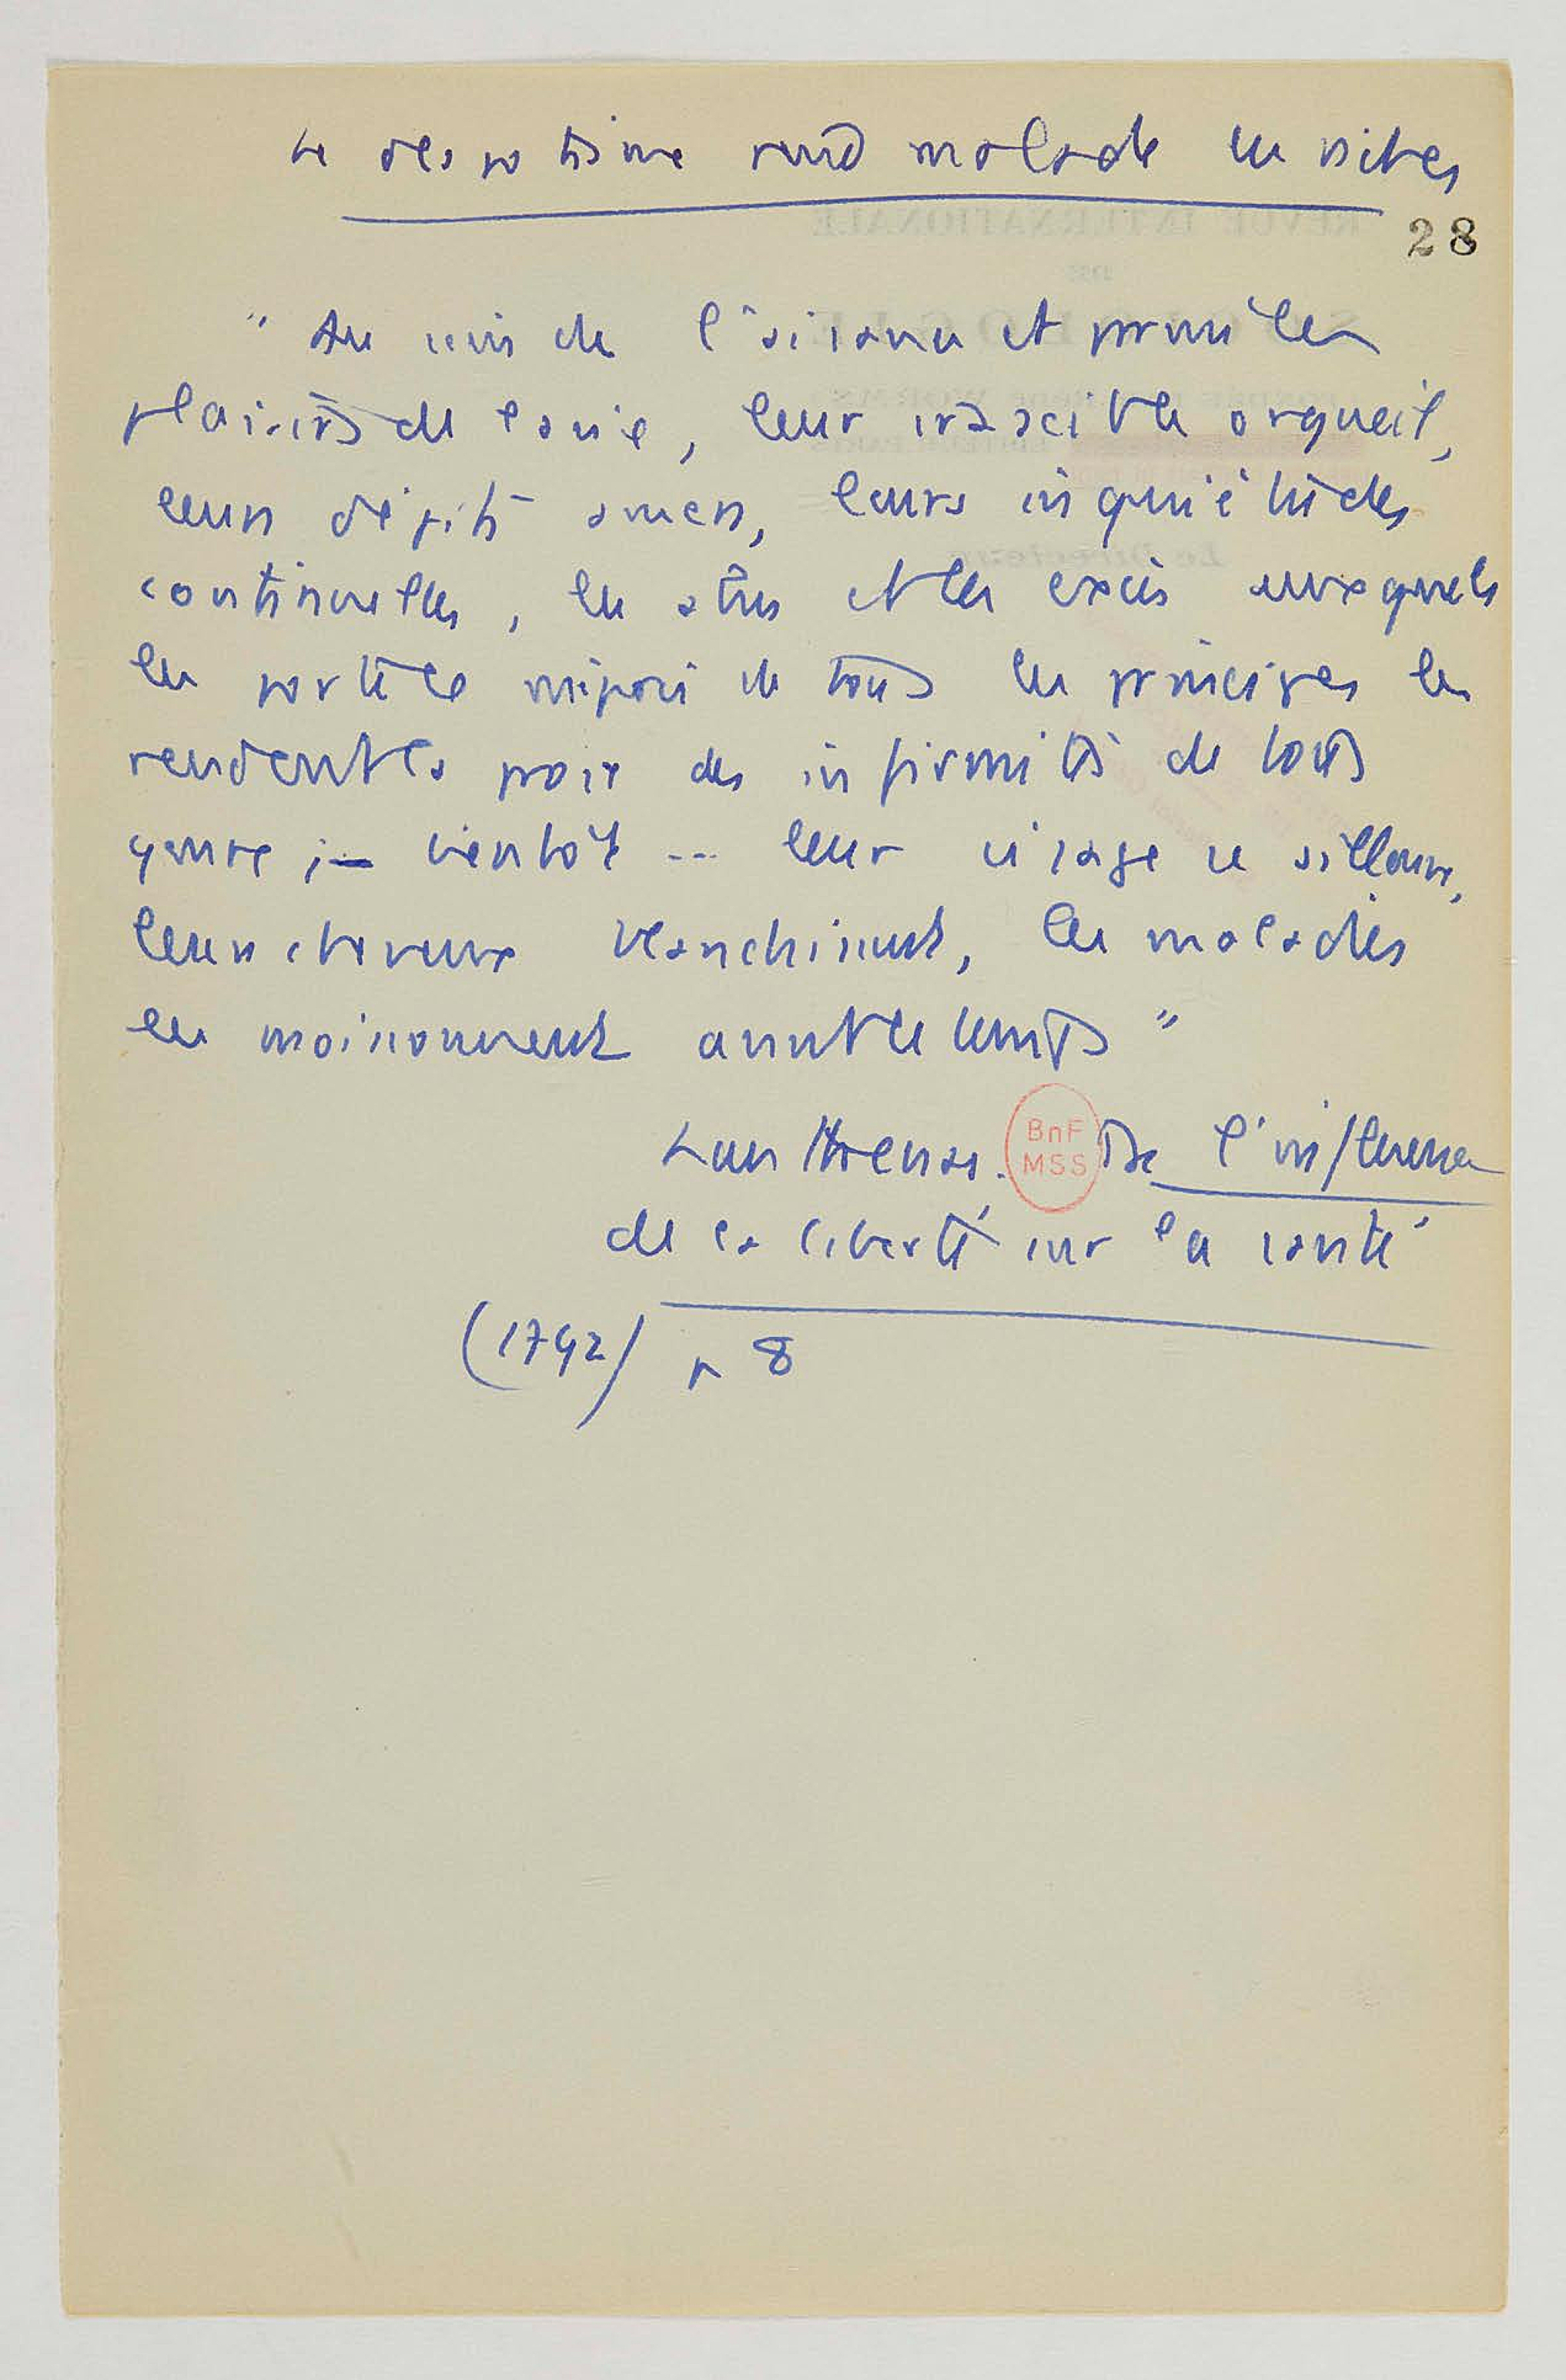 Le despotisme rend malade les riches
28
"Au sein de l'aisance et parmi les
plaisirs de la vie, leur irascible orgueil,
leurs dépits amers, leurs inquiétudes
continuelles, les abus et les excès auxquels
les porte le mépris de tous les principes les
rendent la proie des infirmités de tout
genre ; bientôt ... leur visage se sillonne,
leurs cheveux blanchissent, les maladies
les moissonnent avant le temps"
Lanthenas. De l'influence
BnF
MSS
de la liberté sur la santé
(1792) p 8